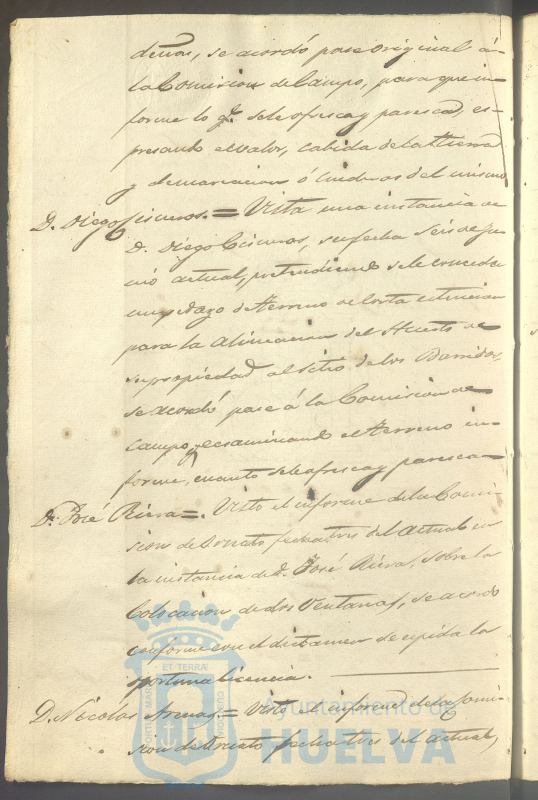 denas, se acordó pase original á
la Comision de Campo, para que in-
forme lo qe. sele ofresca y paresca, es-
presando el valor, cabida de la tierra
y demarcacion ó linderos del mismo
D. Diego Cisneros. = Vista una instancia de
D. Diego Cisneros, su fecha seis de Ju-
nio actual, pretendiendo se le conceda
un pedazo de terreno de corta estencion
para la alineacion del Huerto de
su propiedad al sitio de los Barridos,
se acordó pase á la Comision de
Campo, y ecsaminando el terreno in-
forme, cuanto sele ofresca y paresca
D. José Riera =. Visto el informe de la Comi-
sion de Ornato fecha tres del actual en
la instancia de D. José Riera, sobre la
colocacion de dos ventanas, se acordó
conforme con el dictamen se espida la
oportuna licencia.
D. Nicolas Arenas = Visto el informe de la Comi-
sion de Ornato, fecha tres del actual,
PORTUS MARIS ET TERRAE CUSTODIO
Ayuntamiento de
HUELVA